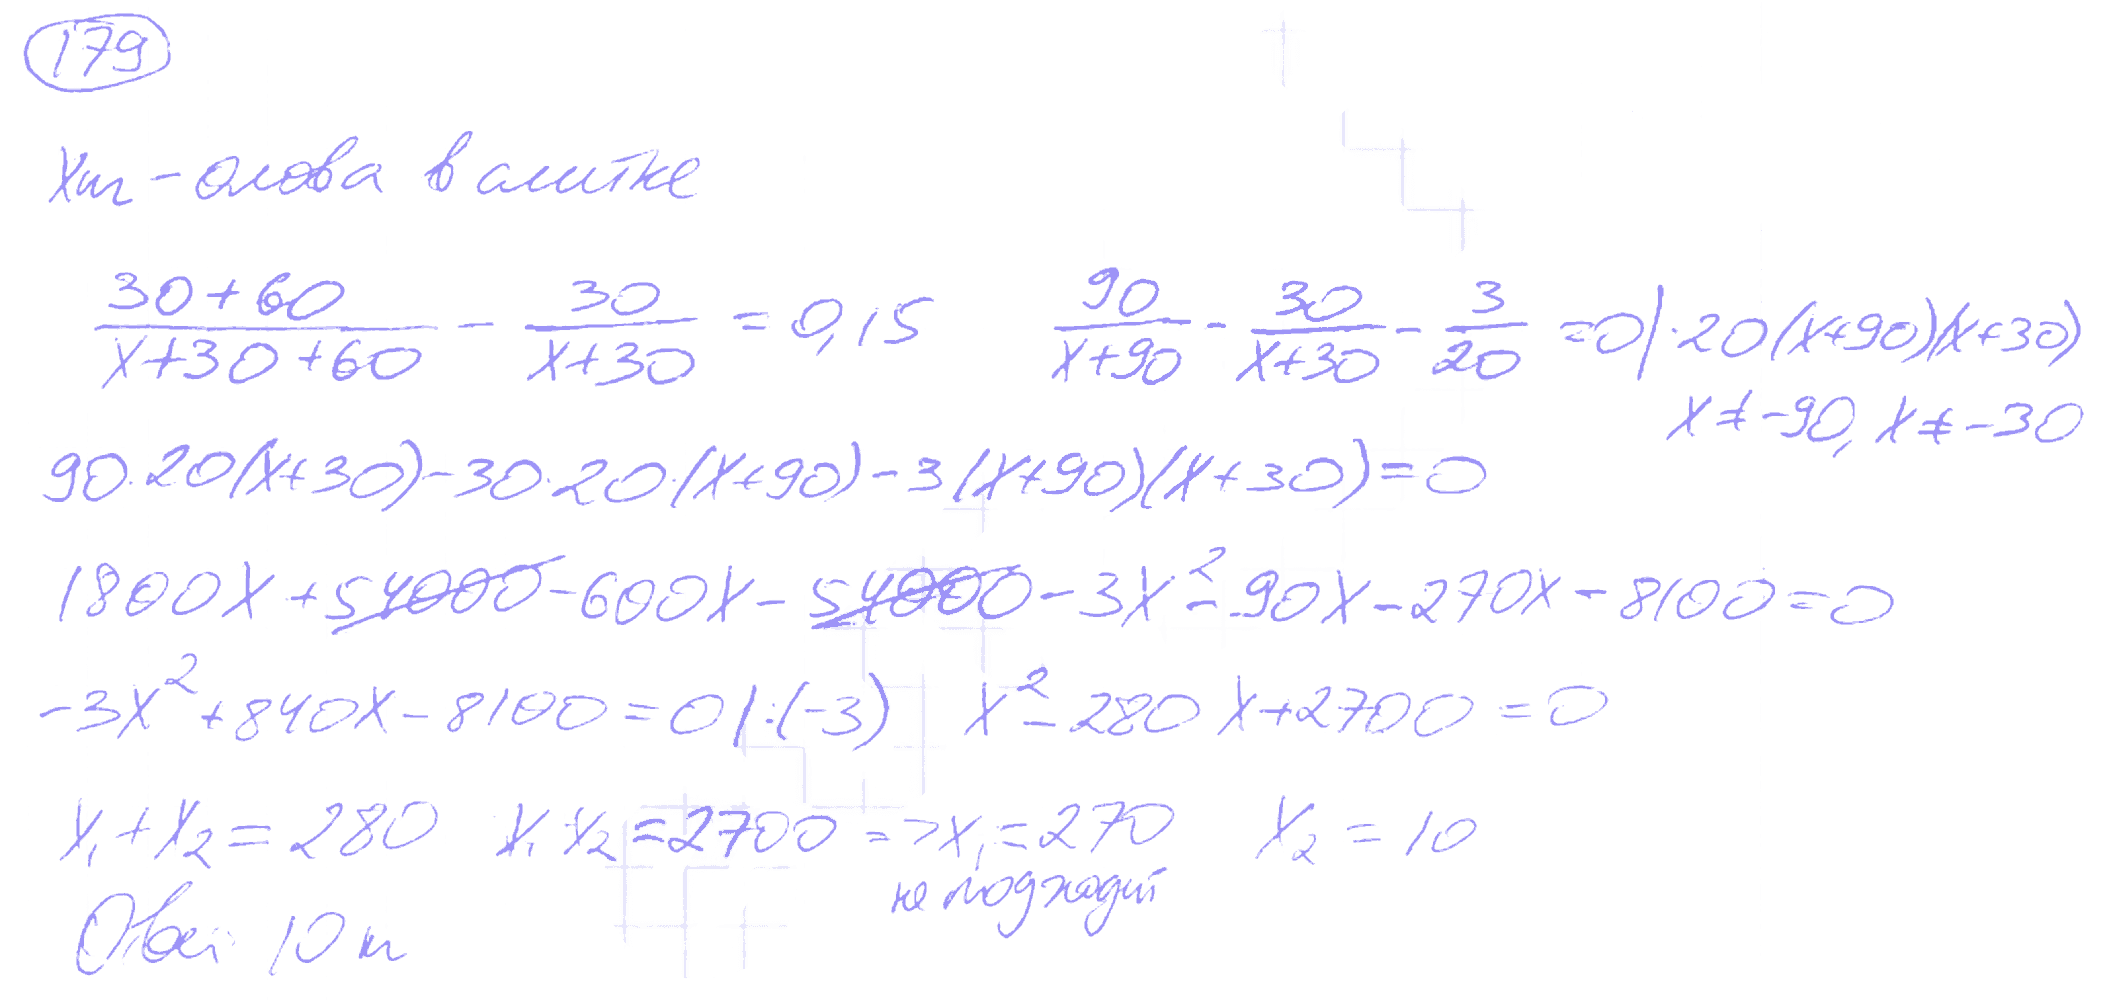 179
x кг - олова в слитке
(30+60)/(x+30+60) - 30/(x+30) = 0,15    90/(x+90) - 30/(x+30) - 3/20 = 0 | · 20(x+90)(x+30)
x ≠ -90, x ≠ -30
90·20(x+30) - 30·20·(x+90) - 3(x+90)(x+30) = 0
1800x + 54000 - 600x - 54000 - 3x² - 90x - 270x - 8100 = 0
-3x² + 840x - 8100 = 0 | :(-3)    x² - 280x + 2700 = 0
x₁ + x₂ = 280    x₁ · x₂ = 2700 => x₁ = 270    x₂ = 10
не подходит
Ответ 10 кг